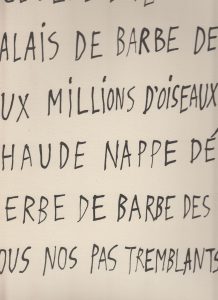 ALAIS DE BARBE DE
UX MILLIONS D'OISEAUX
HAUDE NAPPE DÉ
ERBE DE BARBE DES
OUS NOS PAS TREMBLANTS